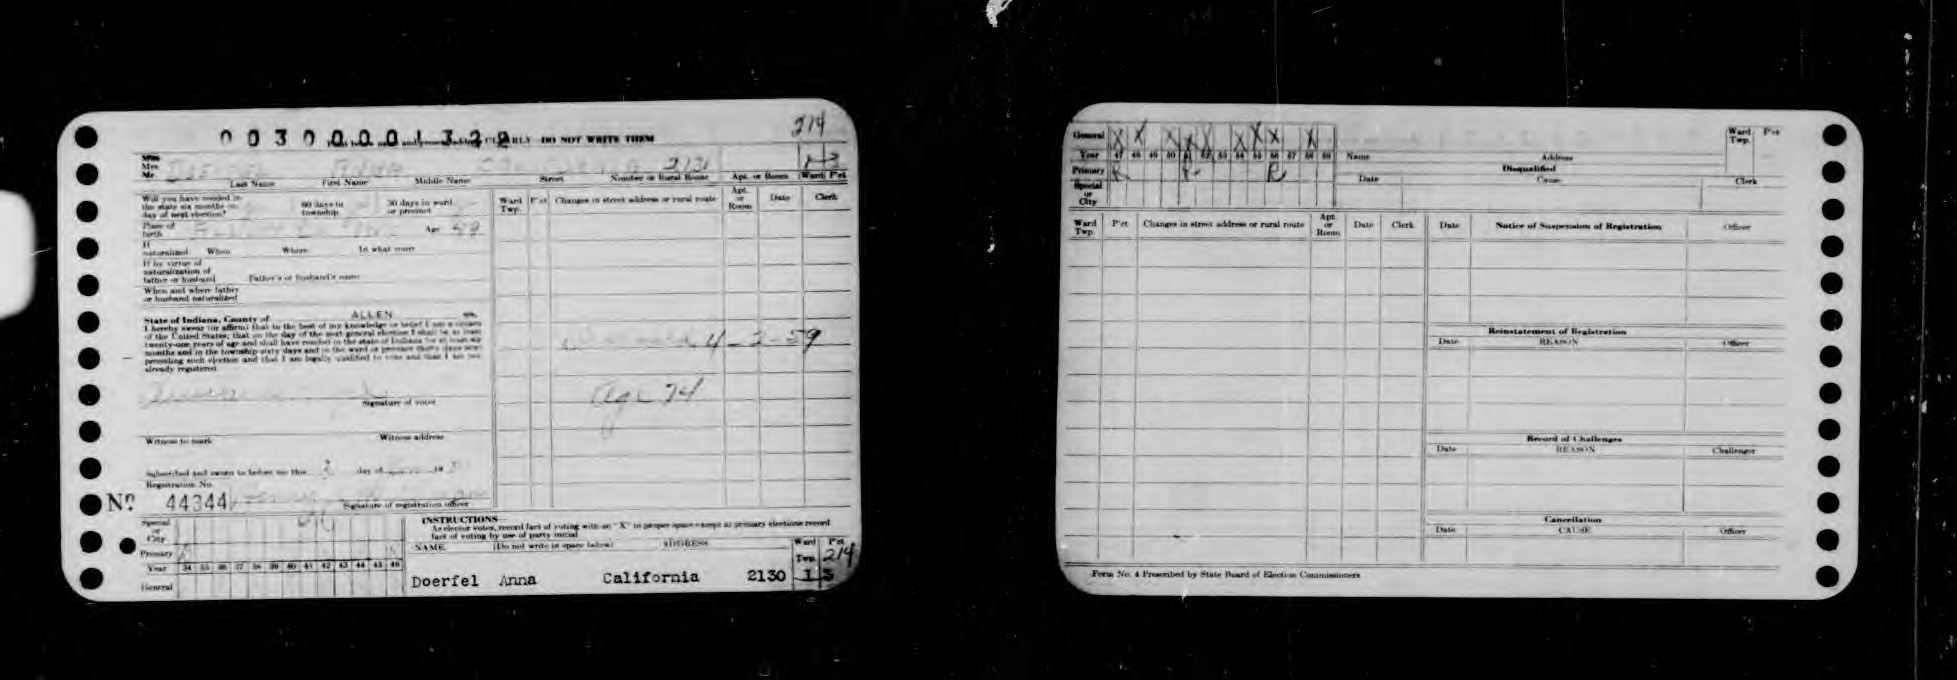 214
0030000132
DO NOT WRITE THEM
Miss
Mrs.
Mr. 2131
Last Name First Name Middle Name Street Number or Rural Route Apt. or Room Ward P'ct
Will you have resided in the state six months on day of next election? 60 days in township 30 days in ward or precinct
Ward Twp. P'ct Changes in street address or rural route Apt. or Room Date Clerk
Place of birth Age 49
If naturalized When Where In what court
If by virtue of naturalization of father or husband Father's or husband's name
When and where father or husband naturalized
State of Indiana, County of ALLEN ss.
I hereby swear (or affirm) that to the best of my knowledge or belief I am a citizen
of the United States; that on the day of the next general election I shall be at least
twenty-one years of age and shall have resided in the state of Indiana for at least six
months and in the township sixty days and in the ward or precinct thirty days next
preceding such election and that I am legally qualified to vote and that I am not
already registered.
4-2-59
age 74
Signature of voter
Witness to mark Witness address
Subscribed and sworn to before me this 3 day of 19
Registration No.
No. 44344 Signature of registration officer
Special or City
Primary
Year 34 35 36 37 38 39 40 41 42 43 44 45 46
General
INSTRUCTIONS—
As elector votes, record fact of voting with an "X" in proper space except at primary elections record
fact of voting by use of party initial
NAME (Do not write in space below) ADDRESS Ward Twp. P'ct 214
Doerfel Anna California 2130 1 3
General X X X X X X X X X
Year 47 48 49 50 51 52 53 54 55 56 57 58 59
Primary R R R
Special or City
Name Address
Ward Twp. P'ct
Disqualified
Date Cause Clerk
Ward Twp. P'ct Changes in street address or rural route Apt. or Room Date Clerk
Date Notice of Suspension of Registration Officer
Reinstatement of Registration
Date REASON Officer
Record of Challenges
Date REASON Challenger
Cancellation
Date CAUSE Officer
Form No. 4 Prescribed by State Board of Election Commissioners